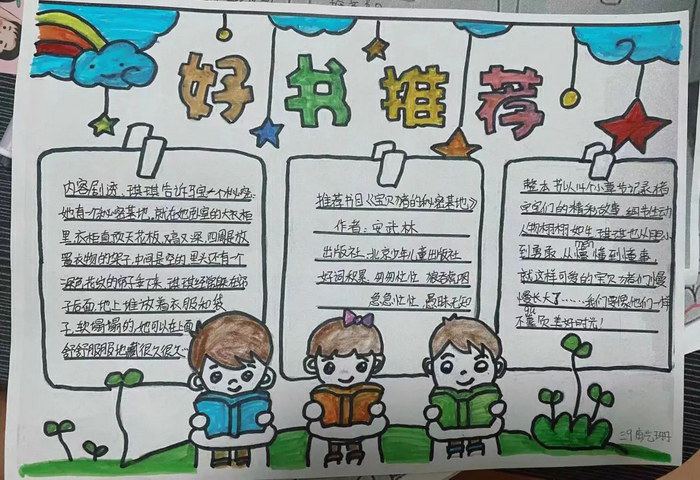 好书推荐
内容剧透：琪琪告诉了宝一个秘密：
她有一个秘密基地，就在她卧室的大衣柜
里衣柜直顶天花板，又高又深，四周是放
置衣物的架子，中间是空的里头还有一个
深色花纹的帘子垂下来，琪琪经常躲在帘
子后面，地上堆放着衣服和袋
子，软塌塌的，她可以在上面
舒舒服服地藏很久很久…
推荐书目《宝贝猪的秘密基地》
作者：安武林
出版社：北京少年儿童出版社
好词积累：匆匆忙忙
急急忙忙 愚昧无知
整本书以14个小章节记录猪
宝宝们的精彩故事，细节生动
人物栩栩如生，琪琪也从胆小
到勇敢，从懵懂到懂事，
就这样可爱的宝贝猪们慢
慢长大了……我们要像他们一样
不辜负美好时光！